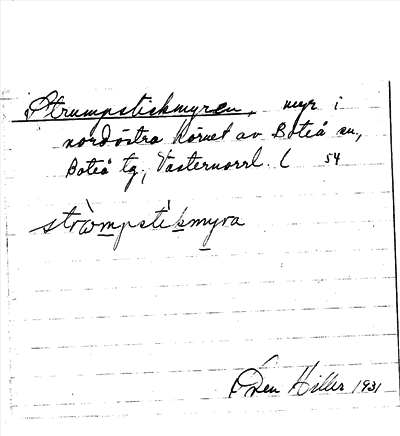 Strumpstickmyren, myr i
nordöstra hörnet av Boteå sn,
Boteå tg, Västernorrl. l 54
stròmpstikmyra
Hiller 1931